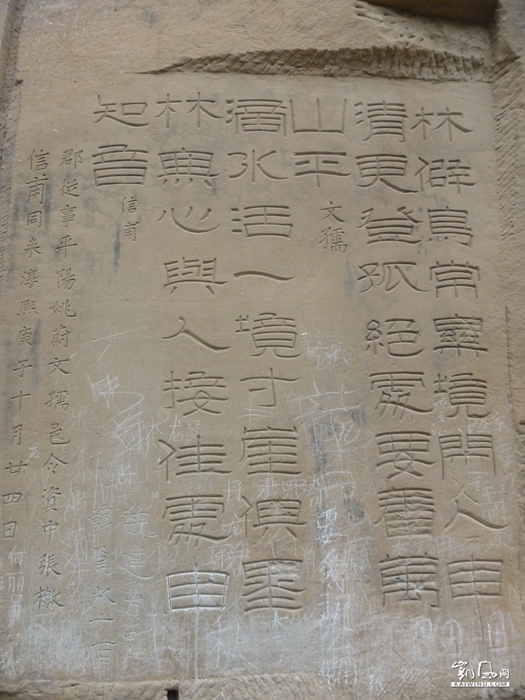 林僻鳥常寡境閒人自
清更登孤絕處要看萬
山平 文孺
水活一境寸崖俱墨
林無心與人接佳處自
知音 信甫
郡從事平陽姚蔚文孺邑令資中張
信甫同来淳熙庚子十月廿四日
凯风网
KAIWIND.COM